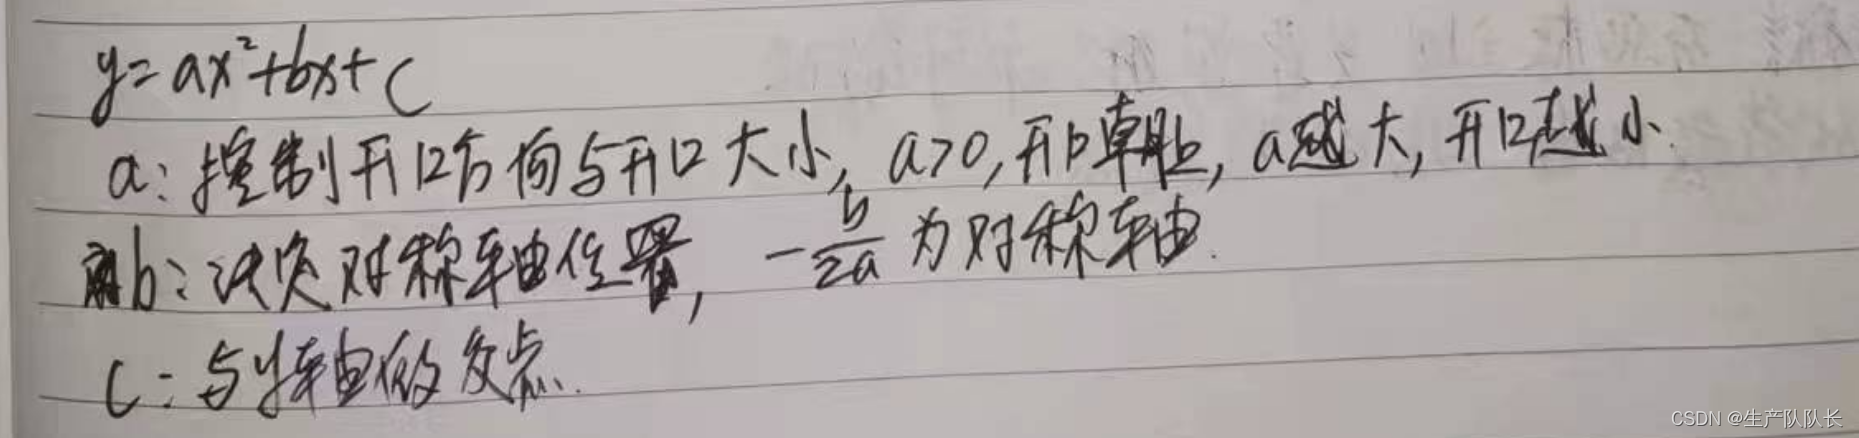 y=ax²+bx+c
a:控制开口方向与开口大小,a>0,开口朝上,a越大,开口越小.
b:决定对称轴位置,-b/2a为对称轴.
c:与y轴的交点.
CSDN @生产队队长